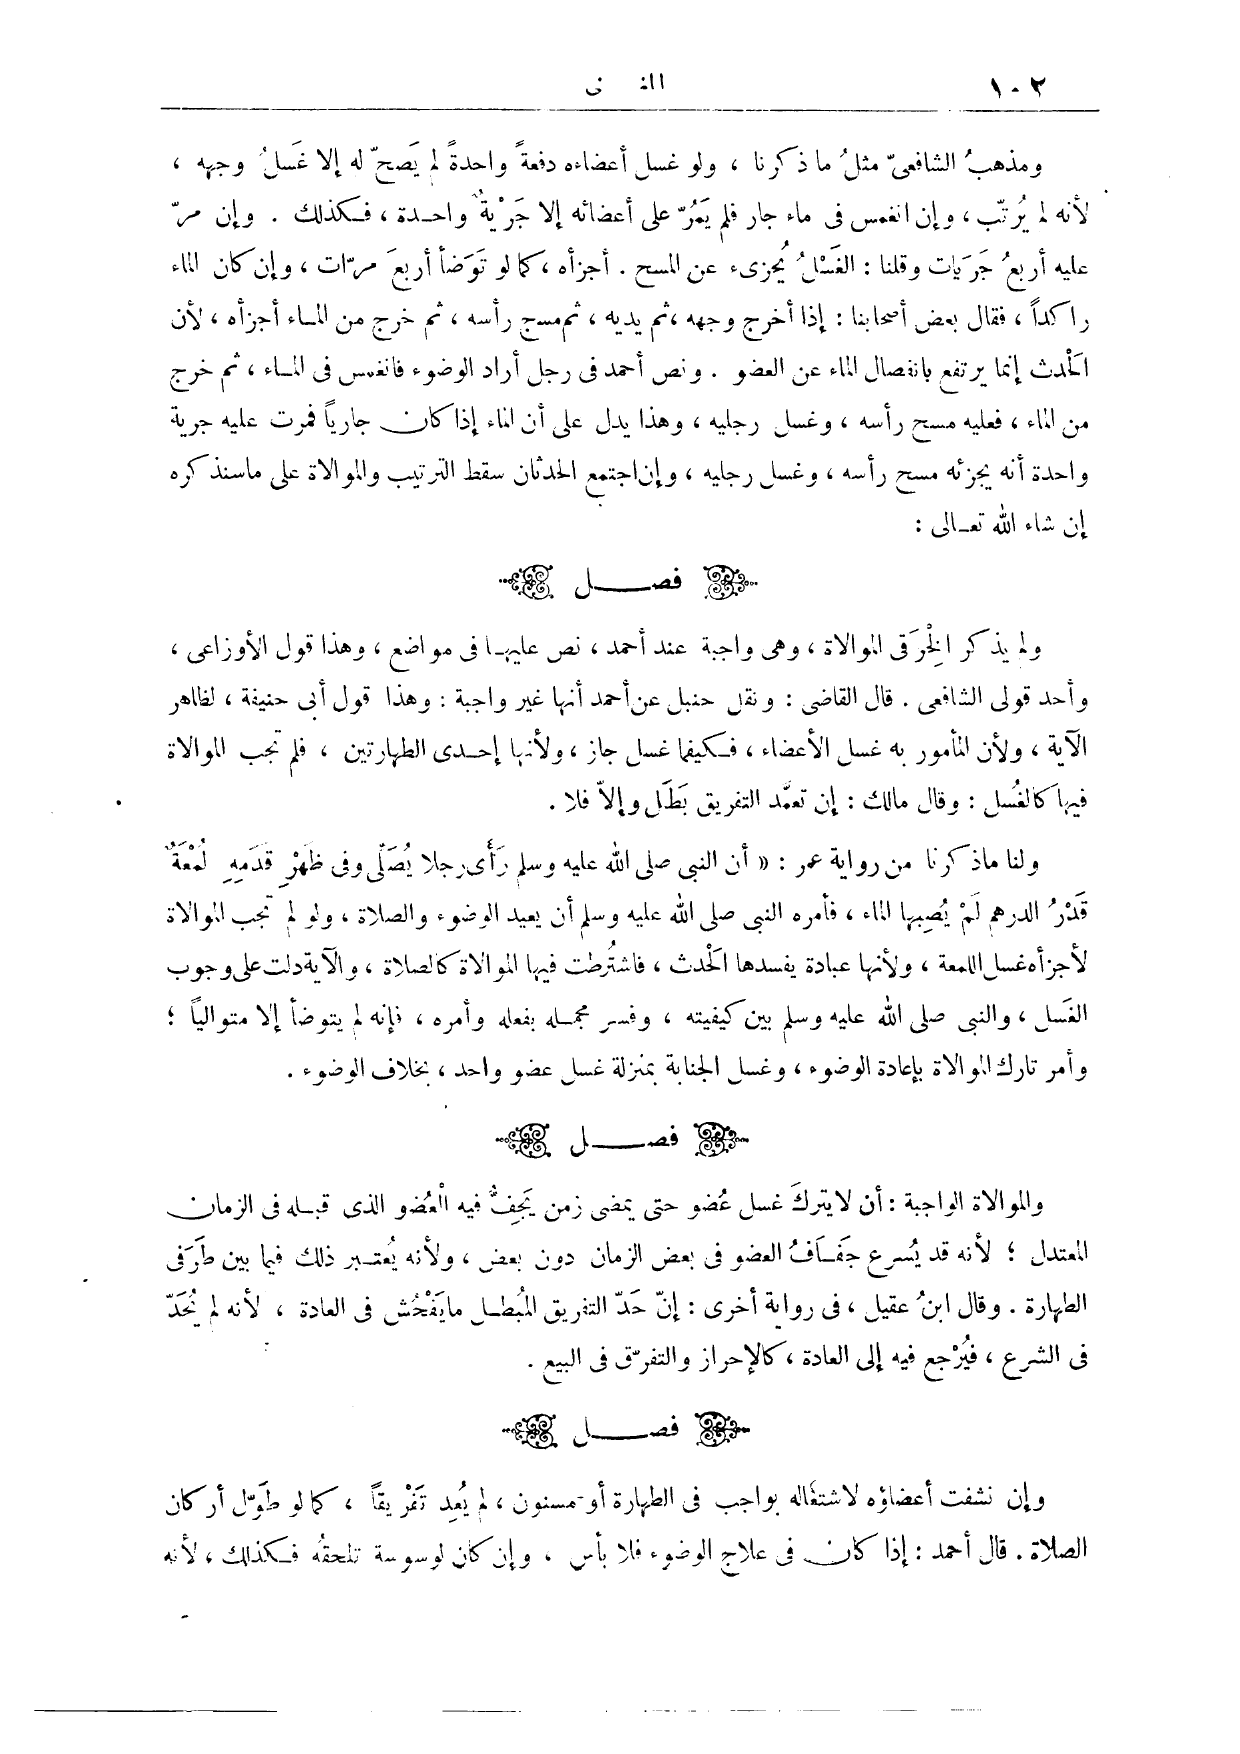 ١٠٢
ومذهبُ الشافعىّ مثلُ ما ذكرنا ، ولو غسل أعضاءه دفعةً واحدةً لم يَصحّ له إلا غَسلُ وجهه ،
لأنه لم يُرتّب ، وإن انغمس فى ماء جار فلم يَمُرّ على أعضائه إلا جَرْيةٌ واحـدة ، فـكذلك . وإن مرّ
عليه أربعُ جَرَيات وقلنا : الغَسْلُ يُجزىء عن المسح . أجزأه ، كما لو تَوَضأ أربعَ مرّات ، وإن كان الماء
راكداً ، فقال بعض أصحابنا : إذا أخرج وجهه ، ثم يديه ، ثم مسح رأسه ، ثم خرج من المـاء أجزأه ، لأن
الَحْدث إنما يرتفع بانفصال الماء عن العضو . ونص أحمد فى رجل أراد الوضوء فانغمس فى المـاء ، ثم خرج
من الماء ، فعليه مسح رأسه ، وغسل رجليه ، وهذا يدل على أن الماء إذا كان جارياً فمرت عليه جرية
واحدة أنه يجزئه مسح رأسه ، وغسل رجليه ، وإن اجتمع الحدثان سقط الترتيب والموالاة على ماسنذكره
إن شاء الله تعـالى :
فصـــل
ولم يذكر الِخْرَقى الموالاة ، وهى واجبة عند أحمد ، نص عليهـا فى مواضع ، وهذا قول الأوزاعى ،
وأحد قولى الشافعى . قال القاضى : ونقل حنبل عن أحمد أنها غير واجبة : وهذا قول أبى حنيفة ، لظاهر
الآية ، ولأن المأمور به غسل الأعضاء ، فـكيفما غسل جاز ، ولأنها إحـدى الطهارتين ، فلم تجب الموالاة
فيها كالغُسل : وقال مالك : إن تعمَّد التفريق بَطَل وإلاّ فلا .
ولنا ماذكرنا من رواية عمر : « أن النبى صلى الله عليه وسلم رَأَى رجلا يُصَلّى وفى ظَهْرِ قَدَمِهِ لُمْعَةٌ
قَدْرُ الدرهم لَمْ يُصِبها الماء ، فأمره النبى صلى الله عليه وسلم أن يعيد الوضوء والصلاة ، ولو لم تجب الموالاة
لأجزأه غسل اللمعة ، ولأنها عبادة يفسدها الَحْدث ، فاشتُرطت فيها الموالاة كالصلاة ، والآية دلت على وجوب
الغَسل ، والنبى صلى الله عليه وسلم بين كيفيته ، وفسر مجمله بفعله وأمره ، فإنه لم يتوضأ إلا متوالياً ؛
وأمر تارك الموالاة بإعادة الوضوء ، وغسل الجنابة بمنزلة غسل عضو واحد ، بخلاف الوضوء .
فصـــل
والموالاة الواجبة : أن لا يتركَ غسل عُضو حتى يمضى زمن يَجِفُّ فيه العُضو الذى قبـله فى الزمان
المعتدل ؛ لأنه قد يُسرع جَفَـافُ العضو فى بعض الزمان دون بعض ، ولأنه يُعتـبر ذلك فيما بين طَرَفى
الطهارة . وقال ابنُ عقيل ، فى رواية أخرى : إنّ حَدّ التفريق المُبطـل مايَفْحُش فى العادة ، لأنه لم يُحَدّ
فى الشرع ، فيُرْجع فيه إلى العادة ، كالإحراز والتفرّق فى البيع .
فصـــل
وإن نشفت أعضاؤه لاشتغاله بواجب فى الطهارة أو مسنون ، لم يُعد تَفْريقاً ، كما لو طَوّل أركان
الصلاة . قال أحمد : إذا كان فى علاج الوضوء فلا بأس ، وإن كان لوسوسة تلحقُه فـكذلك ، لأنه